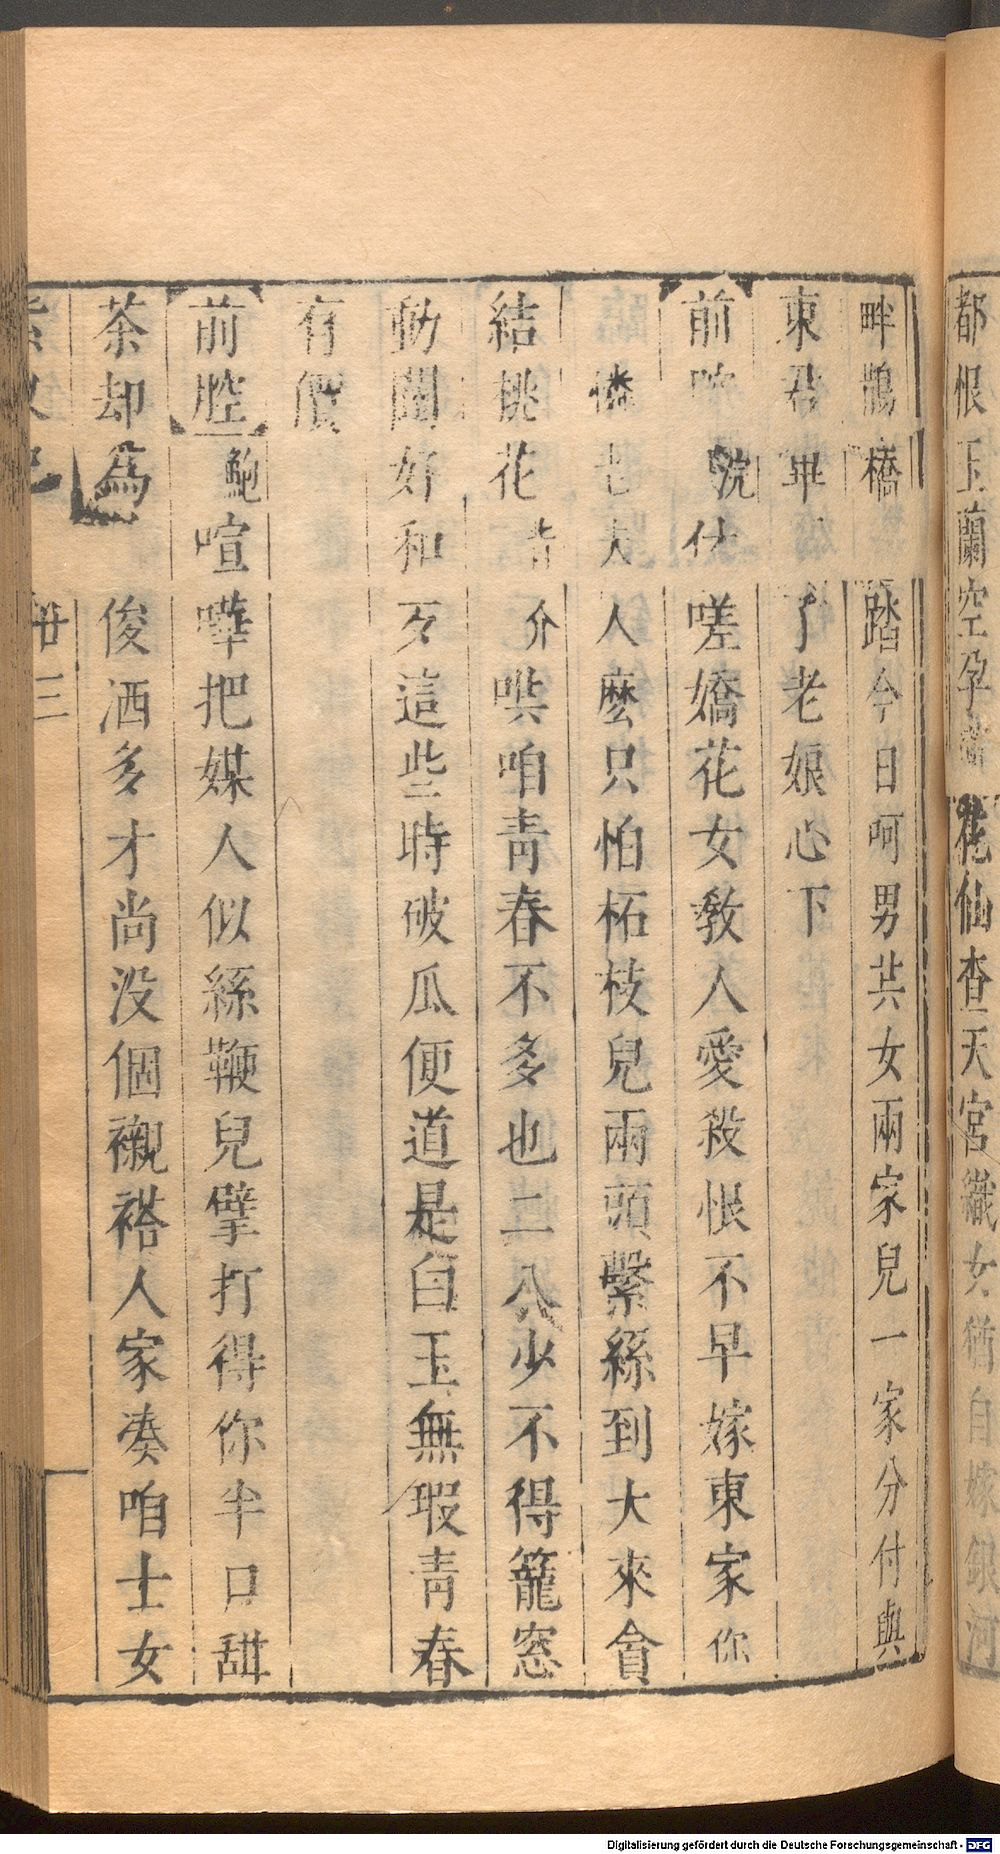 都恨玉蘭空孕花仙杳天宮織女猶自嫁銀河
畔鵲橋踏今日呵男共女兩家兒一家分付與
東君畢了老娘心下
前腔浣仕嗟嬌花女教人愛殺恨不早嫁東家你
憐老大人麼只怕柘枝兒兩頭繫絲到大來貪
結桃花介哄咱青春不多也二八少不得籠窓
動關好和歹這些時破瓜便道是白玉無瑕青春
有價
前腔鮑喧嘩把媒人似絲鞭兒擘打得你半口甜
茶却為俊洒多才尚没個襯褡人家凑咱士女
卅三
Digitalisierung gefördert durch die Deutsche Forschungsgemeinschaft - DFG